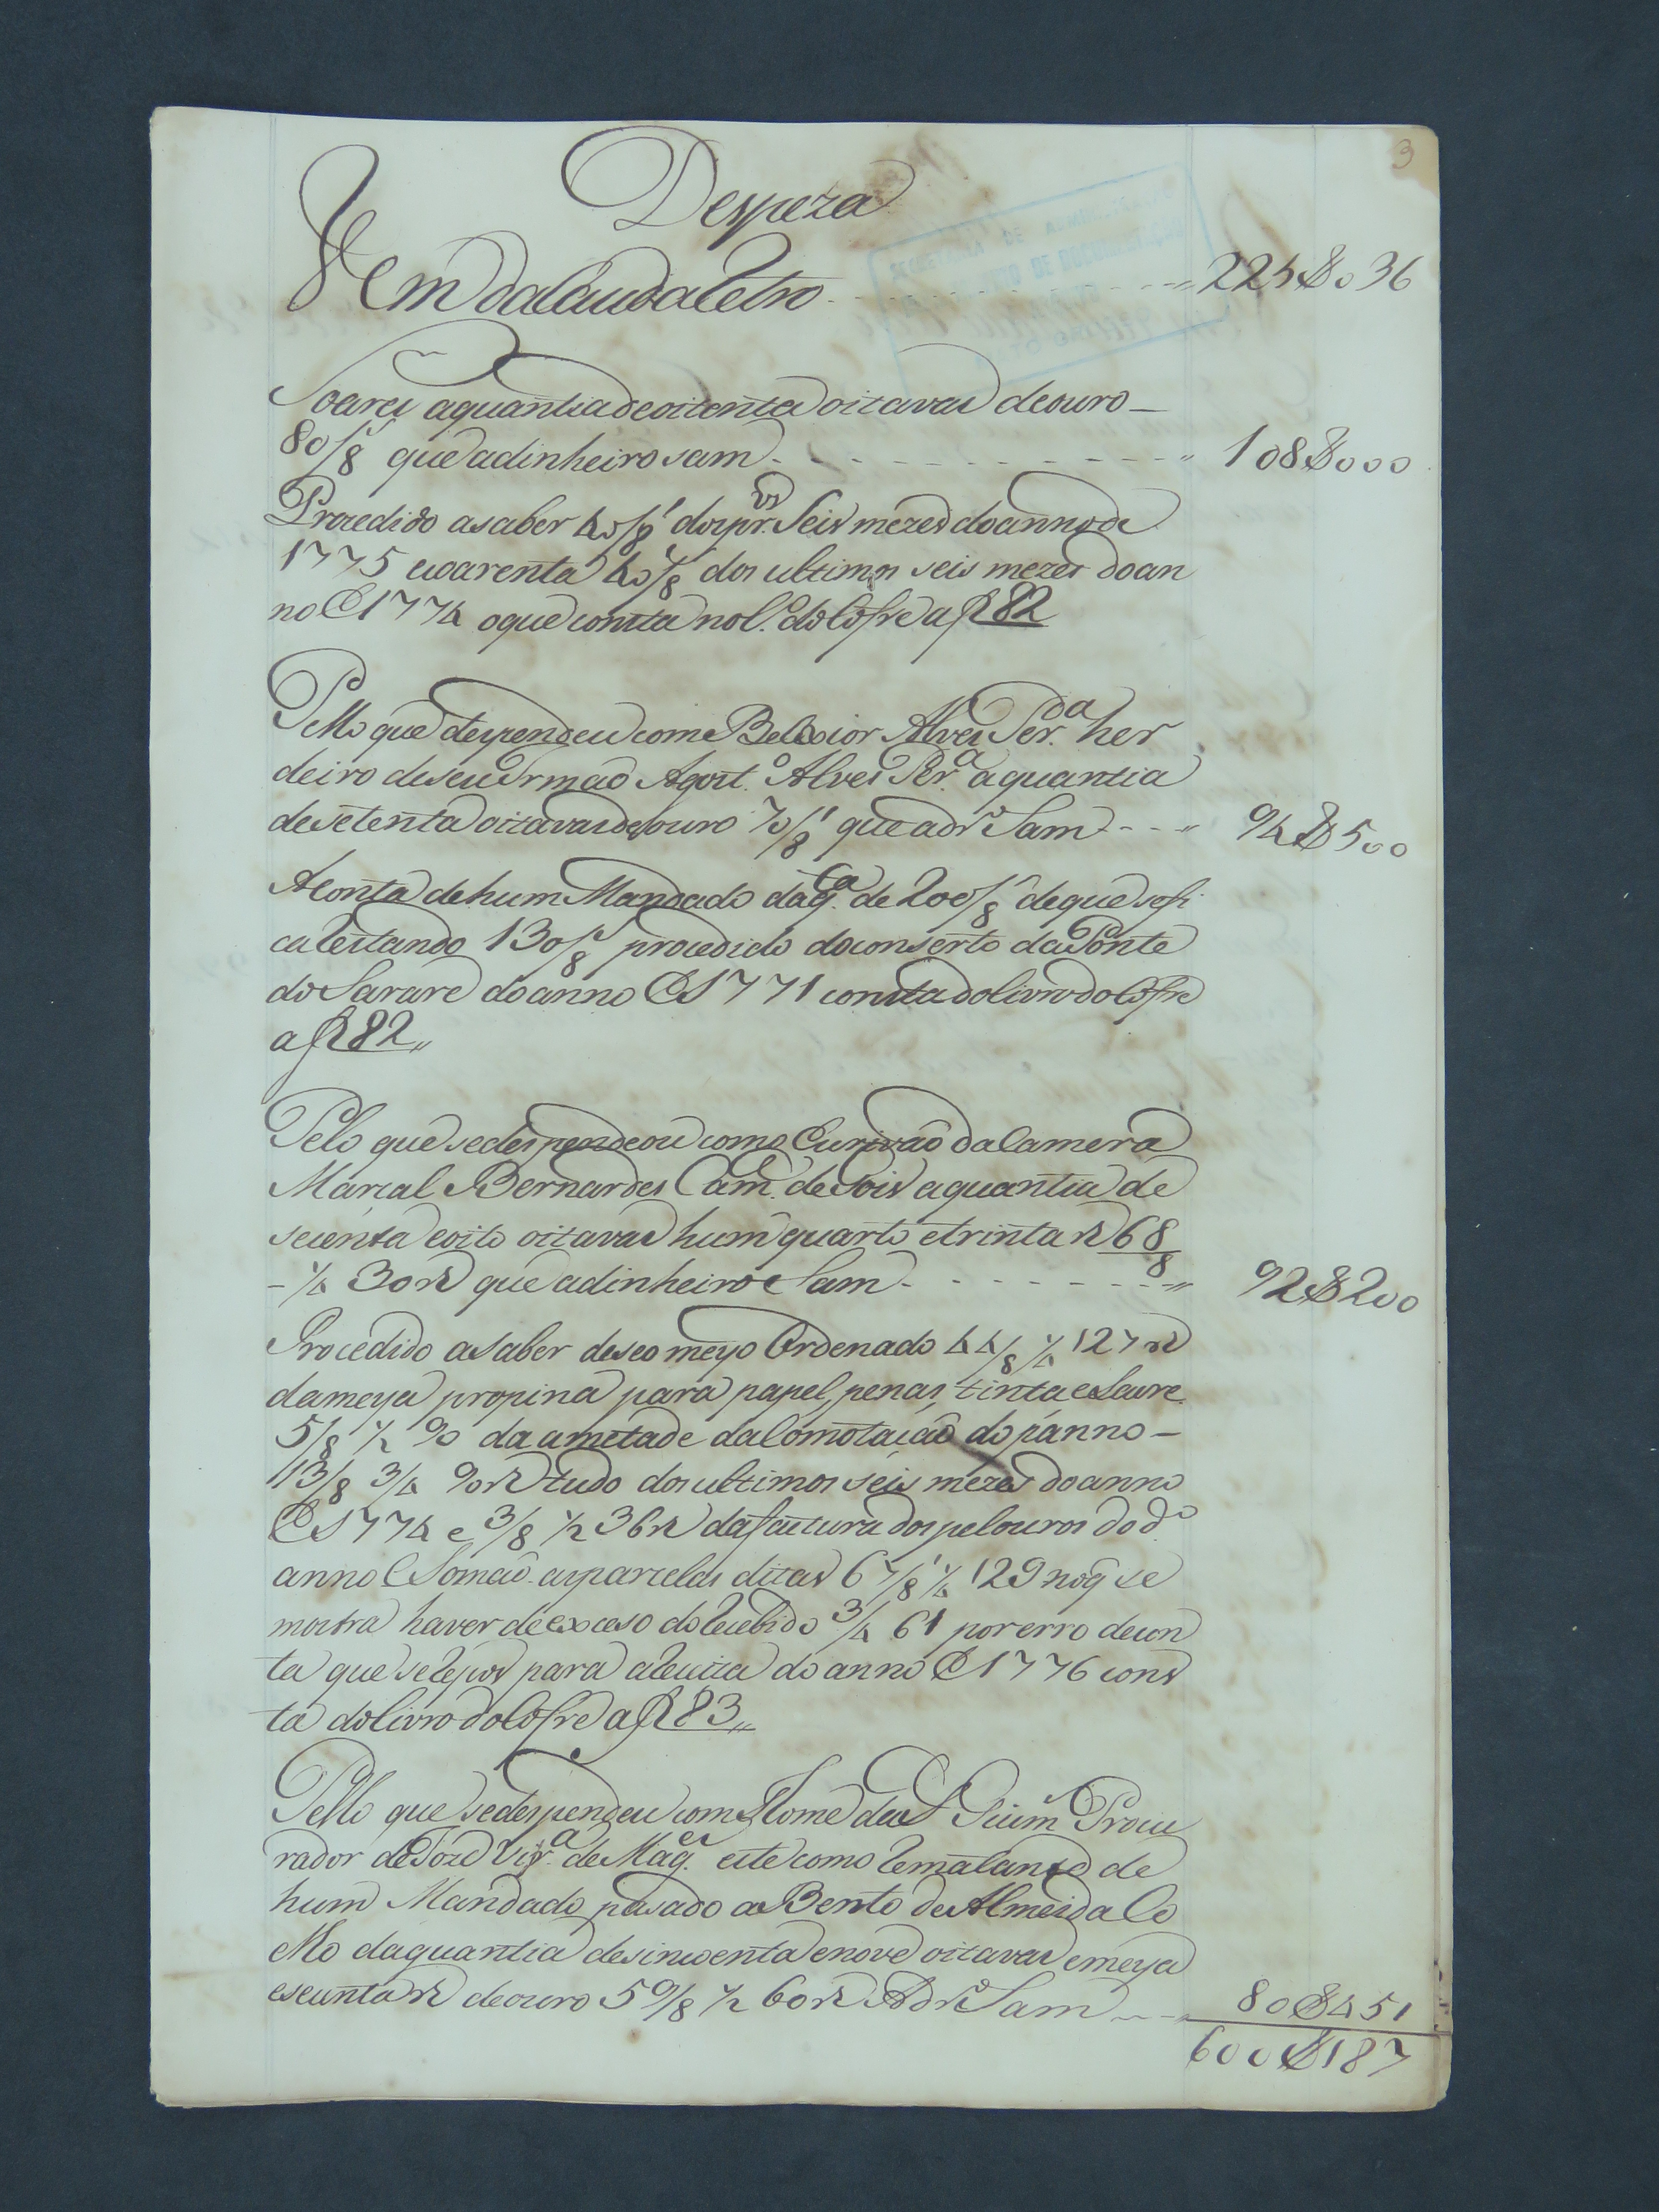 3
Despeza
Vem da lauda Retro 225$036
Soares aquantia de oitenta oitavas de ouro
80/8 que adinheiro sam 108$000
Procedido asaber 40/8 dos pr.os Seis mezes do anno de
1775 e coarenta 40/8 dos ultimos seis mezes do an
no de 1774 o que consta no L.o do Cofre a f 82
Pello que despendeu com Belxior Alves Per.a her
deiro deseu Irmaõ Agost.o Alves Per.a aquantia
desetenta oitavas de ouro 70/8 que adr.o Sam 94$500
A Conta de hum Mandado da q.ta de 200/8 de que sefi
ca Restando 130/8 procedido do conserto da Ponte
do Sararé do anno de 1771 consta do livro do Cofre
a f 82
Pelo que se despendeou com o Escrivaõ da Camera
Marcal Bernardes Cam.e de Sois aquantia de
secenta e oito oitavas hum quarto e trinta r 68/8
1/4 30 r que adinheiro Sam 92$200
Procedido a Saber de seo meyo Ordenado 44/8 1/4 127 r
da meya propina para papel, penas, tinta e Lacre
5/8 1/2 90 da ametade da Comotaçaõ do panno
13/8 3/4 90 r tudo dos ultimos seis mezes do anno
de 1774 e 3/8 1/2 36 r da factura dos pelouros do d.o
anno e Somaõ as parcelas ditas 67/8 1/4 129 no q se
mostra haver de exceso do Recebido 3/4 61 por erro de con
ta que se Repos para a Receita do anno de 1776 cons
ta do livro do Cofre a f 83
Pello que se despendeu com Thome de Guim.s Procu
rador de Joze Vir.a de Mag.es este como Rematante de
hum Mandado pasado a Bento de Almeida Co
elho da quantia desincoenta e nove oitavas e meya
e secunta r de ouro 59/8 1/2 60 r Adr.o Sam 80$451
600$187